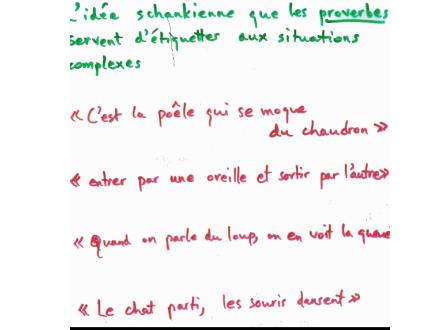 L'idée schankienne que les proverbes
servent d'étiquettes aux situations
complexes
« C'est la poêle qui se moque
du chaudron »
« entrer par une oreille et sortir par l'autre »
« Quand on parle du loup, on en voit la queue
« Le chat parti, les souris dansent »